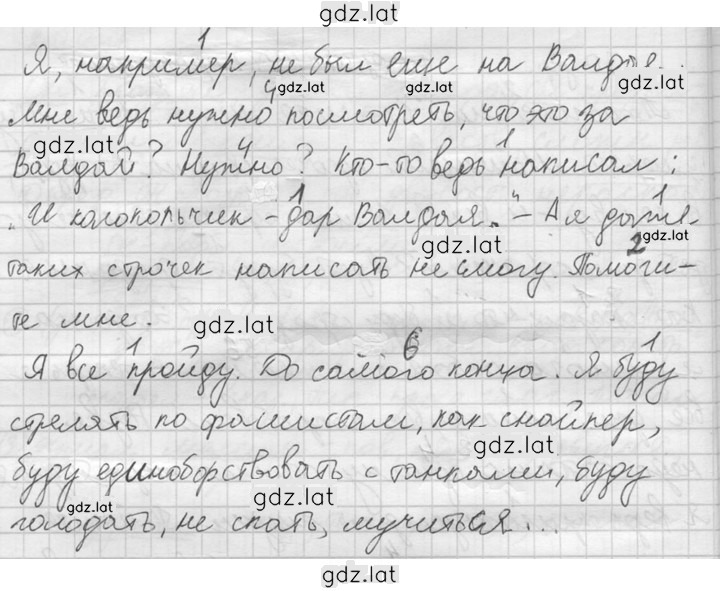 gdz.lat
1
Я, например, не был еще на Валдае.
4 gdz.lat gdz.lat gdz.lat
Мне ведь нужно посмотреть, что это за
gdz.lat 4 1
Валдай? Нужно? Кто-то ведь написал:
1 1
„И колокольчик – дар Валдая." – А я даже
gdz.lat 2 gdz.lat
таких строчек написать не смогу. Помоги-
те мне.
gdz.lat
1 6 1
Я все пройду. До самого конца. Я буду
стрелять по фашистам, как снайпер,
gdz.lat gdz.lat
буду единоборствовать с танками, буду
gdz.lat gdz.lat
голодать, не спать, мучиться...
gdz.lat